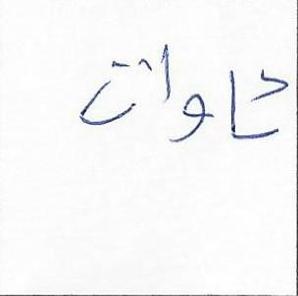 كاوات